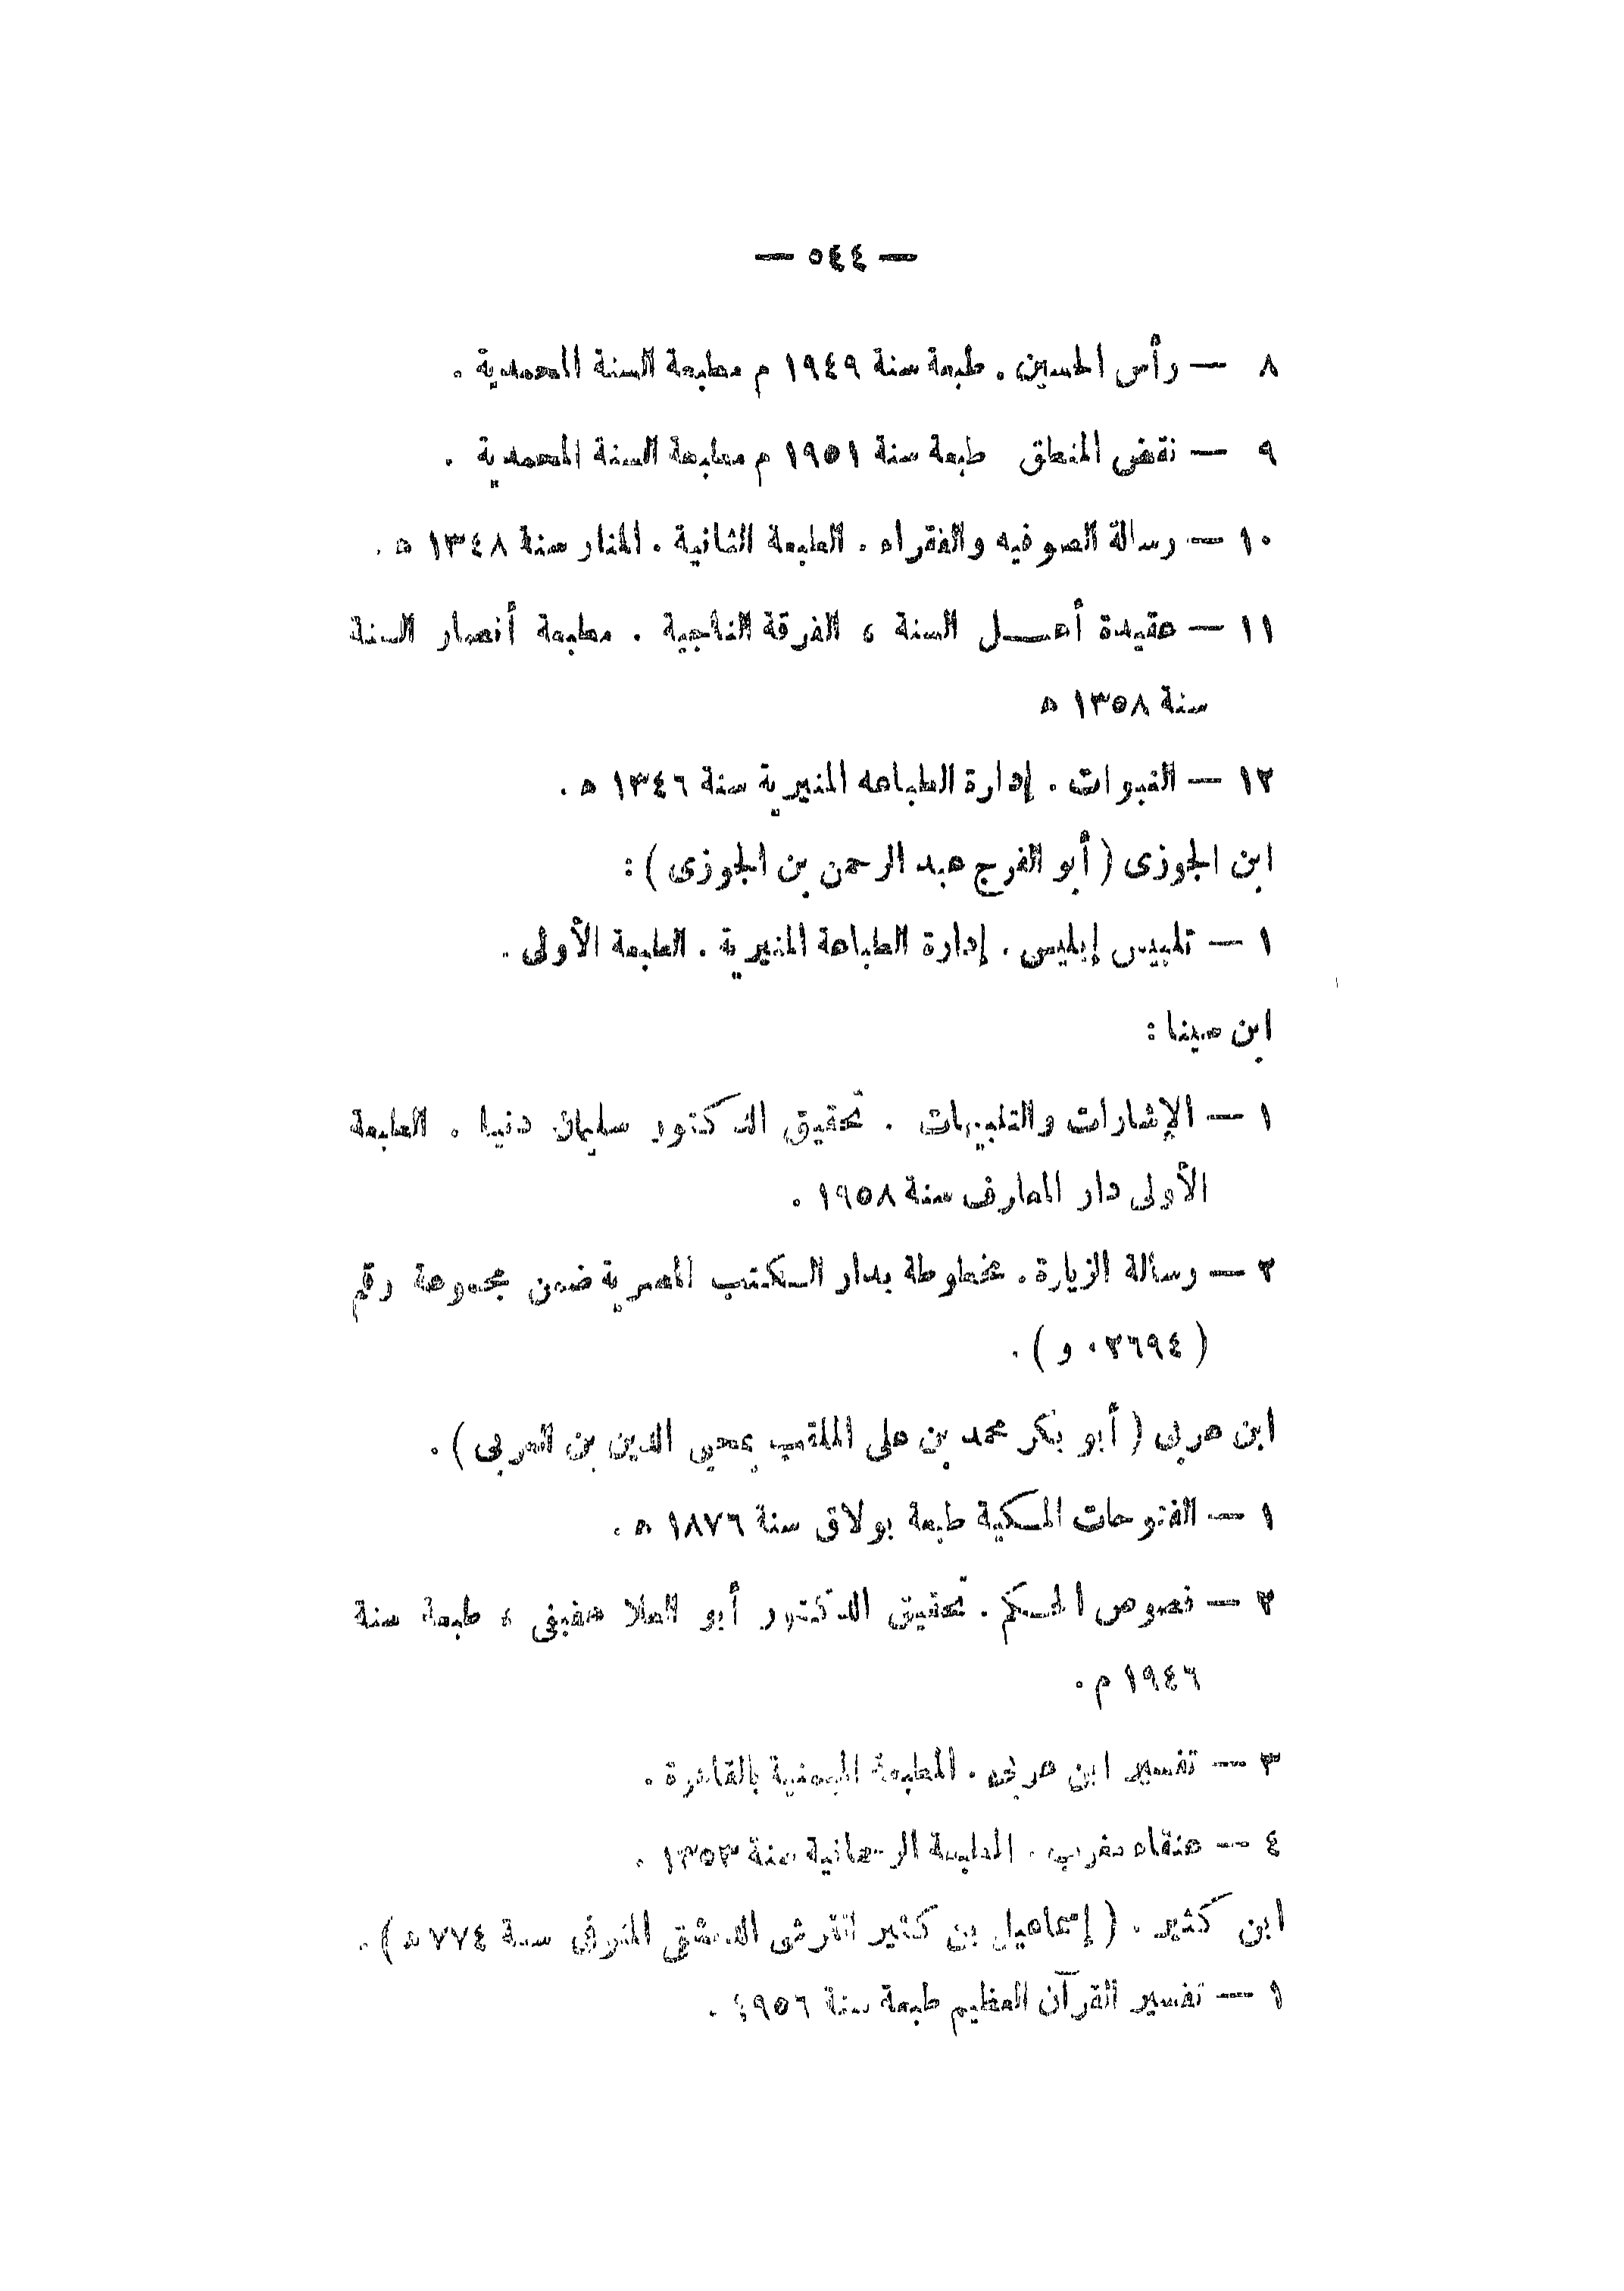 — ٥٤٤ —
٨ — رأس الحسين . طبعة سنة ١٩٤٩ م مطبعة السنة المحمدية .
٩ — نقض المنطق طبعة سنة ١٩٥١ م مطبعة السنة المحمدية .
١٠ — رسالة الصوفيه والفقراء . الطبعة الثانية . المنار سنة ١٣٤٨ ه .
١١ — عقيدة أهل السنة ، الفرقة الناجية . مطبعة أنصار السنة
سنة ١٣٥٨ ه
١٢ — النبوات . إدارة الطباعه المنيرية سنة ١٣٤٦ ه .
ابن الجوزى ( أبو الفرج عبد الرحمن بن الجوزى ) :
١ — تلبيس إبليس . إدارة الطباعة المنيرية . الطبعة الأولى .
ابن سينا :
١ — الإشارات والتنبيهات . تحقيق الدكتور سليمان دنيا . الطبعة
الأولى دار المعارف سنة ١٩٥٨ .
٢ — رسالة الزيارة . مخطوطة بدار الكتب المصرية ضمن مجموعة رقم
( ٠٢٦٩٤ و ) .
ابن عربى ( أبو بكر محمد بن على الملقب بمحيى الدين بن العربى ) .
١ — الفتوحات المكية طبعة بولاق سنة ١٨٧٦ ه .
٢ — فصوص الحكم . تحقيق الدكتور أبو العلا عفيفى ، طبعة سنة
١٩٤٦ م .
٣ — تفسير ابن عربى . المطبعة الميمنية بالقاهرة .
٤ — عنقاء مغرب . المطبعة الرحمانية سنة ١٣٥٣ .
ابن كثير . ( إسماعيل بن كثير القرشى الدمشقى المتوفى سنة ٧٧٤ ه ) .
١ — تفسير القرآن العظيم طبعة سنة ١٩٥٦ .